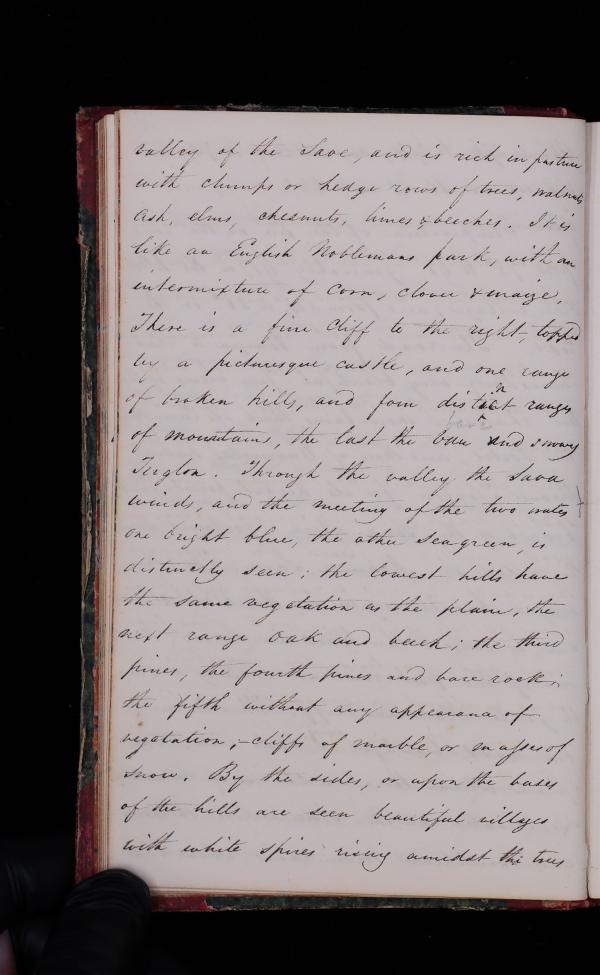 valley of the Save, and is rich in pasture
with clumps or hedge rows of trees, walnuts
ash, elms, chesnuts, limes & beeches. It is
like an English Noblemans park, with an
intermixture of corn, clover & maize,
There is a fine cliff to the right, topped
by a picturesque castle, and one range
of broken hills, and four distinct ranges
of mountains, the last the bare and snowy
Terglou. Through the valley the Sava
winds, and the meeting of the two waters
one bright blue, the other sea green, is
distinctly seen; the lowest hills have
the same vegetation as the plain, the
next range oak and beech; the third
pines, the fourth pines and bare rock;
the fifth without any appearance of
vegetation;- cliffs of marble, or masses of
snow. By the sides, or upon the bases
of the hills are seen beautiful villages
with white spires rising amidst the trees